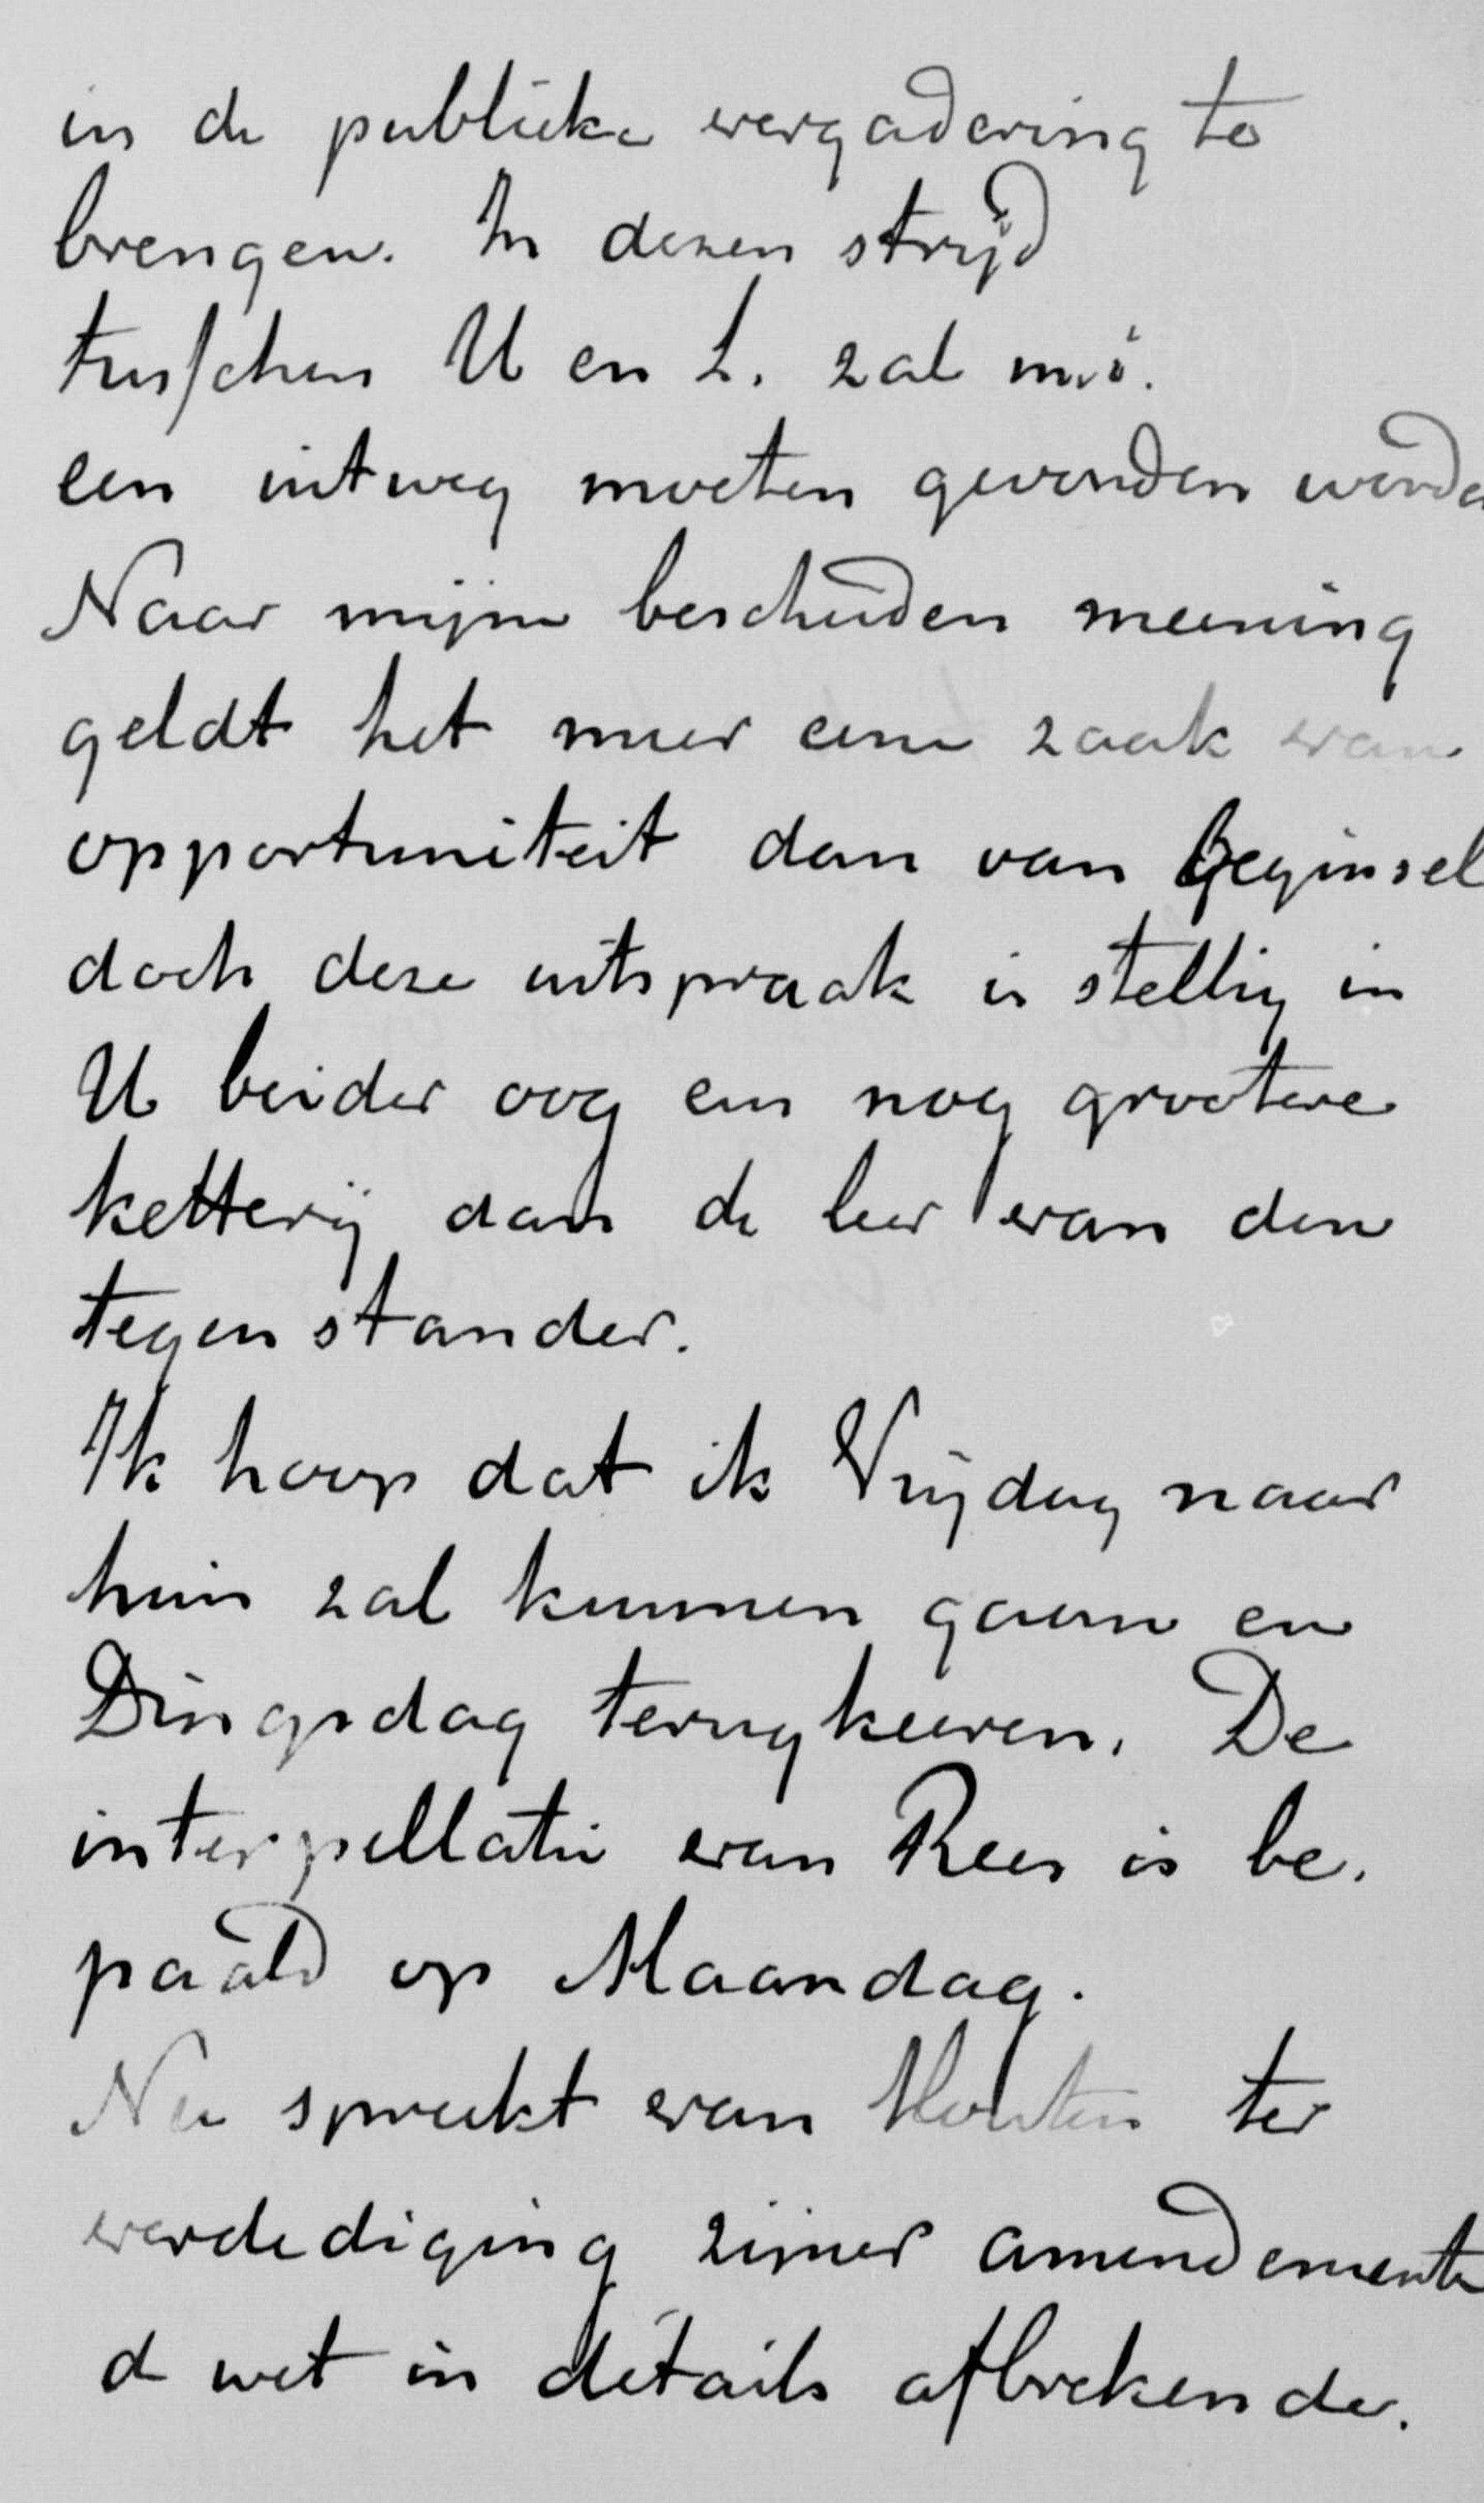 in de publieke vergadering te
brengen. In dezen strijd
tusschen U en L. zal m.i.
een uitweg moeten gevonden worde
Naar mijne bescheiden meening
geldt het meer eene zaak van
opportuniteit dan van beginsel
doch deze uitspraak is stellig in
U beider oog een nog grootere
ketterij dan de leer van den
tegenstander.
Ik hoop dat ik Vrijdag naar
huis zal kunnen gaan en
Dingsdag terugkeeren. De
interpellatie van Rees is be.
paald op Maandag.
Nu spreekt van Houten ter
verdediging zijner amendementen
d wet in détails afbrekende.